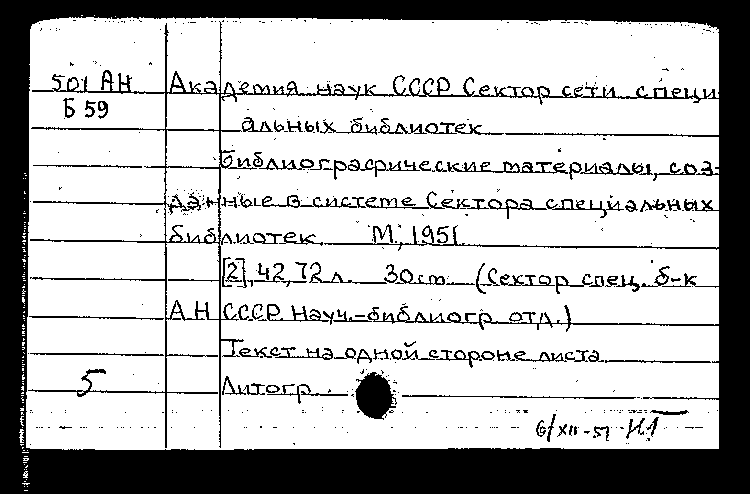 501 АН Академия наук СССР Сектор сети специ-
Б 59
альных библиотек
Библиографические материалы, соз-
данные в системе Сектора специальных
библиотек. М., 1951.
[2], 42, 72 л. 30 см. (Сектор спец. б-к
АН СССР. Науч.-библиогр. отд.)
Текст на одной стороне листа
5
Литогр.
6/XII-51